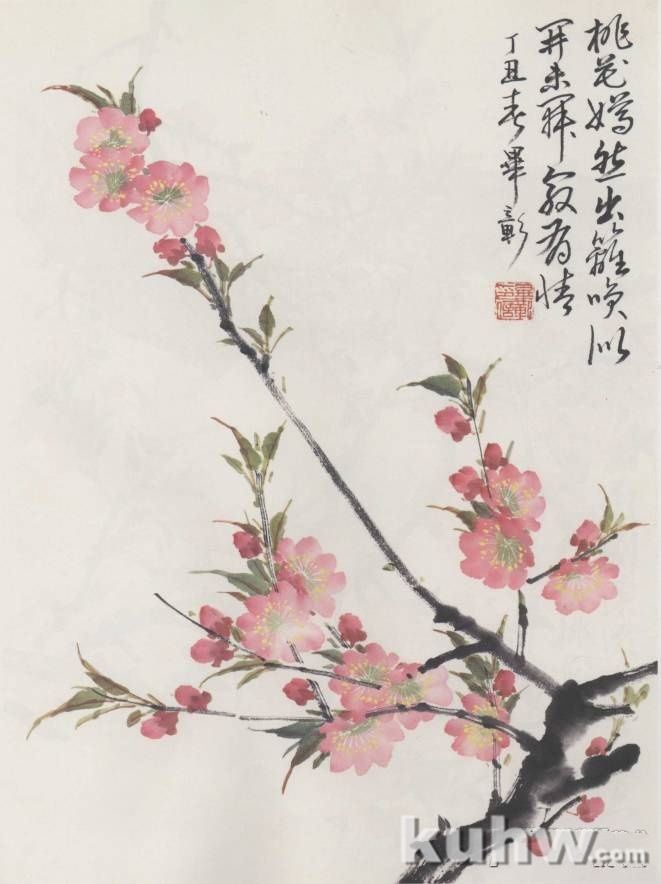 桃花嫣然出籬笑似
開未開最有情
丁丑春畢彰
kuhw.com